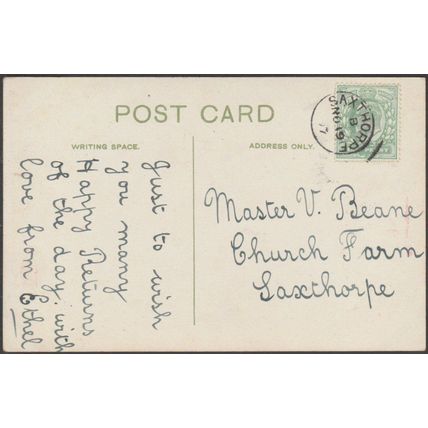 POST CARD
WRITING SPACE.
Just to wish
you many
Happy Returns
of the day with
love from Ethel
ADDRESS ONLY.
Master V. Beane
Church Farm
Saxthorpe
SAXTHORPE
B
NO 19